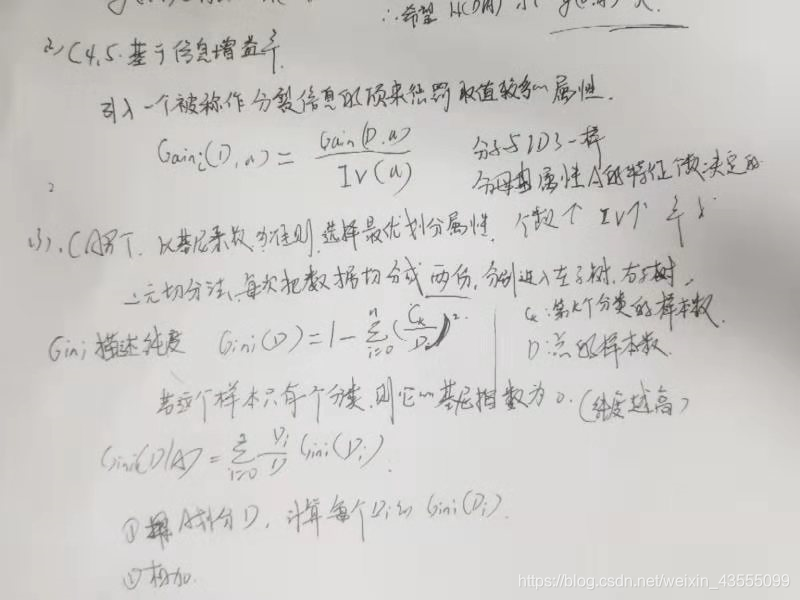 ∴希望 H(D|A) 小 g(D,A) 大.
(2) C4.5. 基于信息增益率
引入一个被称作分裂信息的项来惩罚取值较多的属性.
Gain(D,a) = Gain(D,a) / IV(a)
分子与ID3一样
分母由属性A的特征个数决定的
个数↑ IV↑ 率↓
(3). CART. 以基尼系数为准则,选择最优划分属性.
二元切分法、每次把数据切分成两份,分别进入左子树,右子树.
Gini描述纯度 Gini(D) = 1 - Σ_{i=0}^{n} (Ck/D)².
Ck:第k个分类的样本数.
D:总的样本数.
若这个样本只有一个分类,则它的基尼指数为0.(纯度越高)
Gini(D|A) = Σ_{i=0} Di/D Gini(Di).
① A划分D,计算每个Di的Gini(Di).
② 相加.
https://blog.csdn.net/weixin_43555099